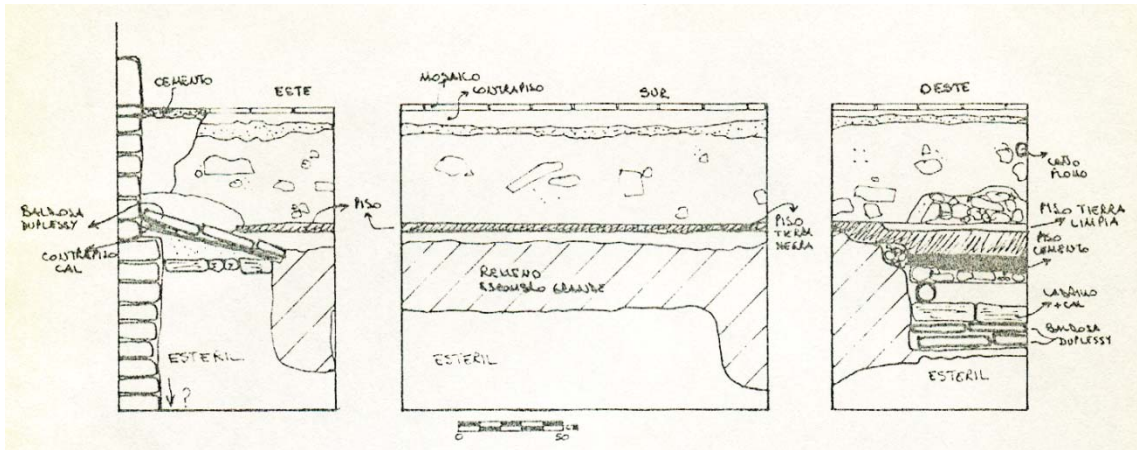 CEMENTO
ESTE
BALDOSA
DUPLESSY
CONTRAPISO
CAL
PISO
ESTERIL
?
MOZAICO
CONTRAPISO
SUR
RELLENO
ESCOMBRO GRANDE
PISO
TIERRA
NEGRA
ESTERIL
0 50 CM
OESTE
CAÑO
PLOMO
PISO TIERRA
LIMPIA
PISO
CEMENTO
LADRILLO
+ CAL
BALDOSA
DUPLESSY
ESTERIL